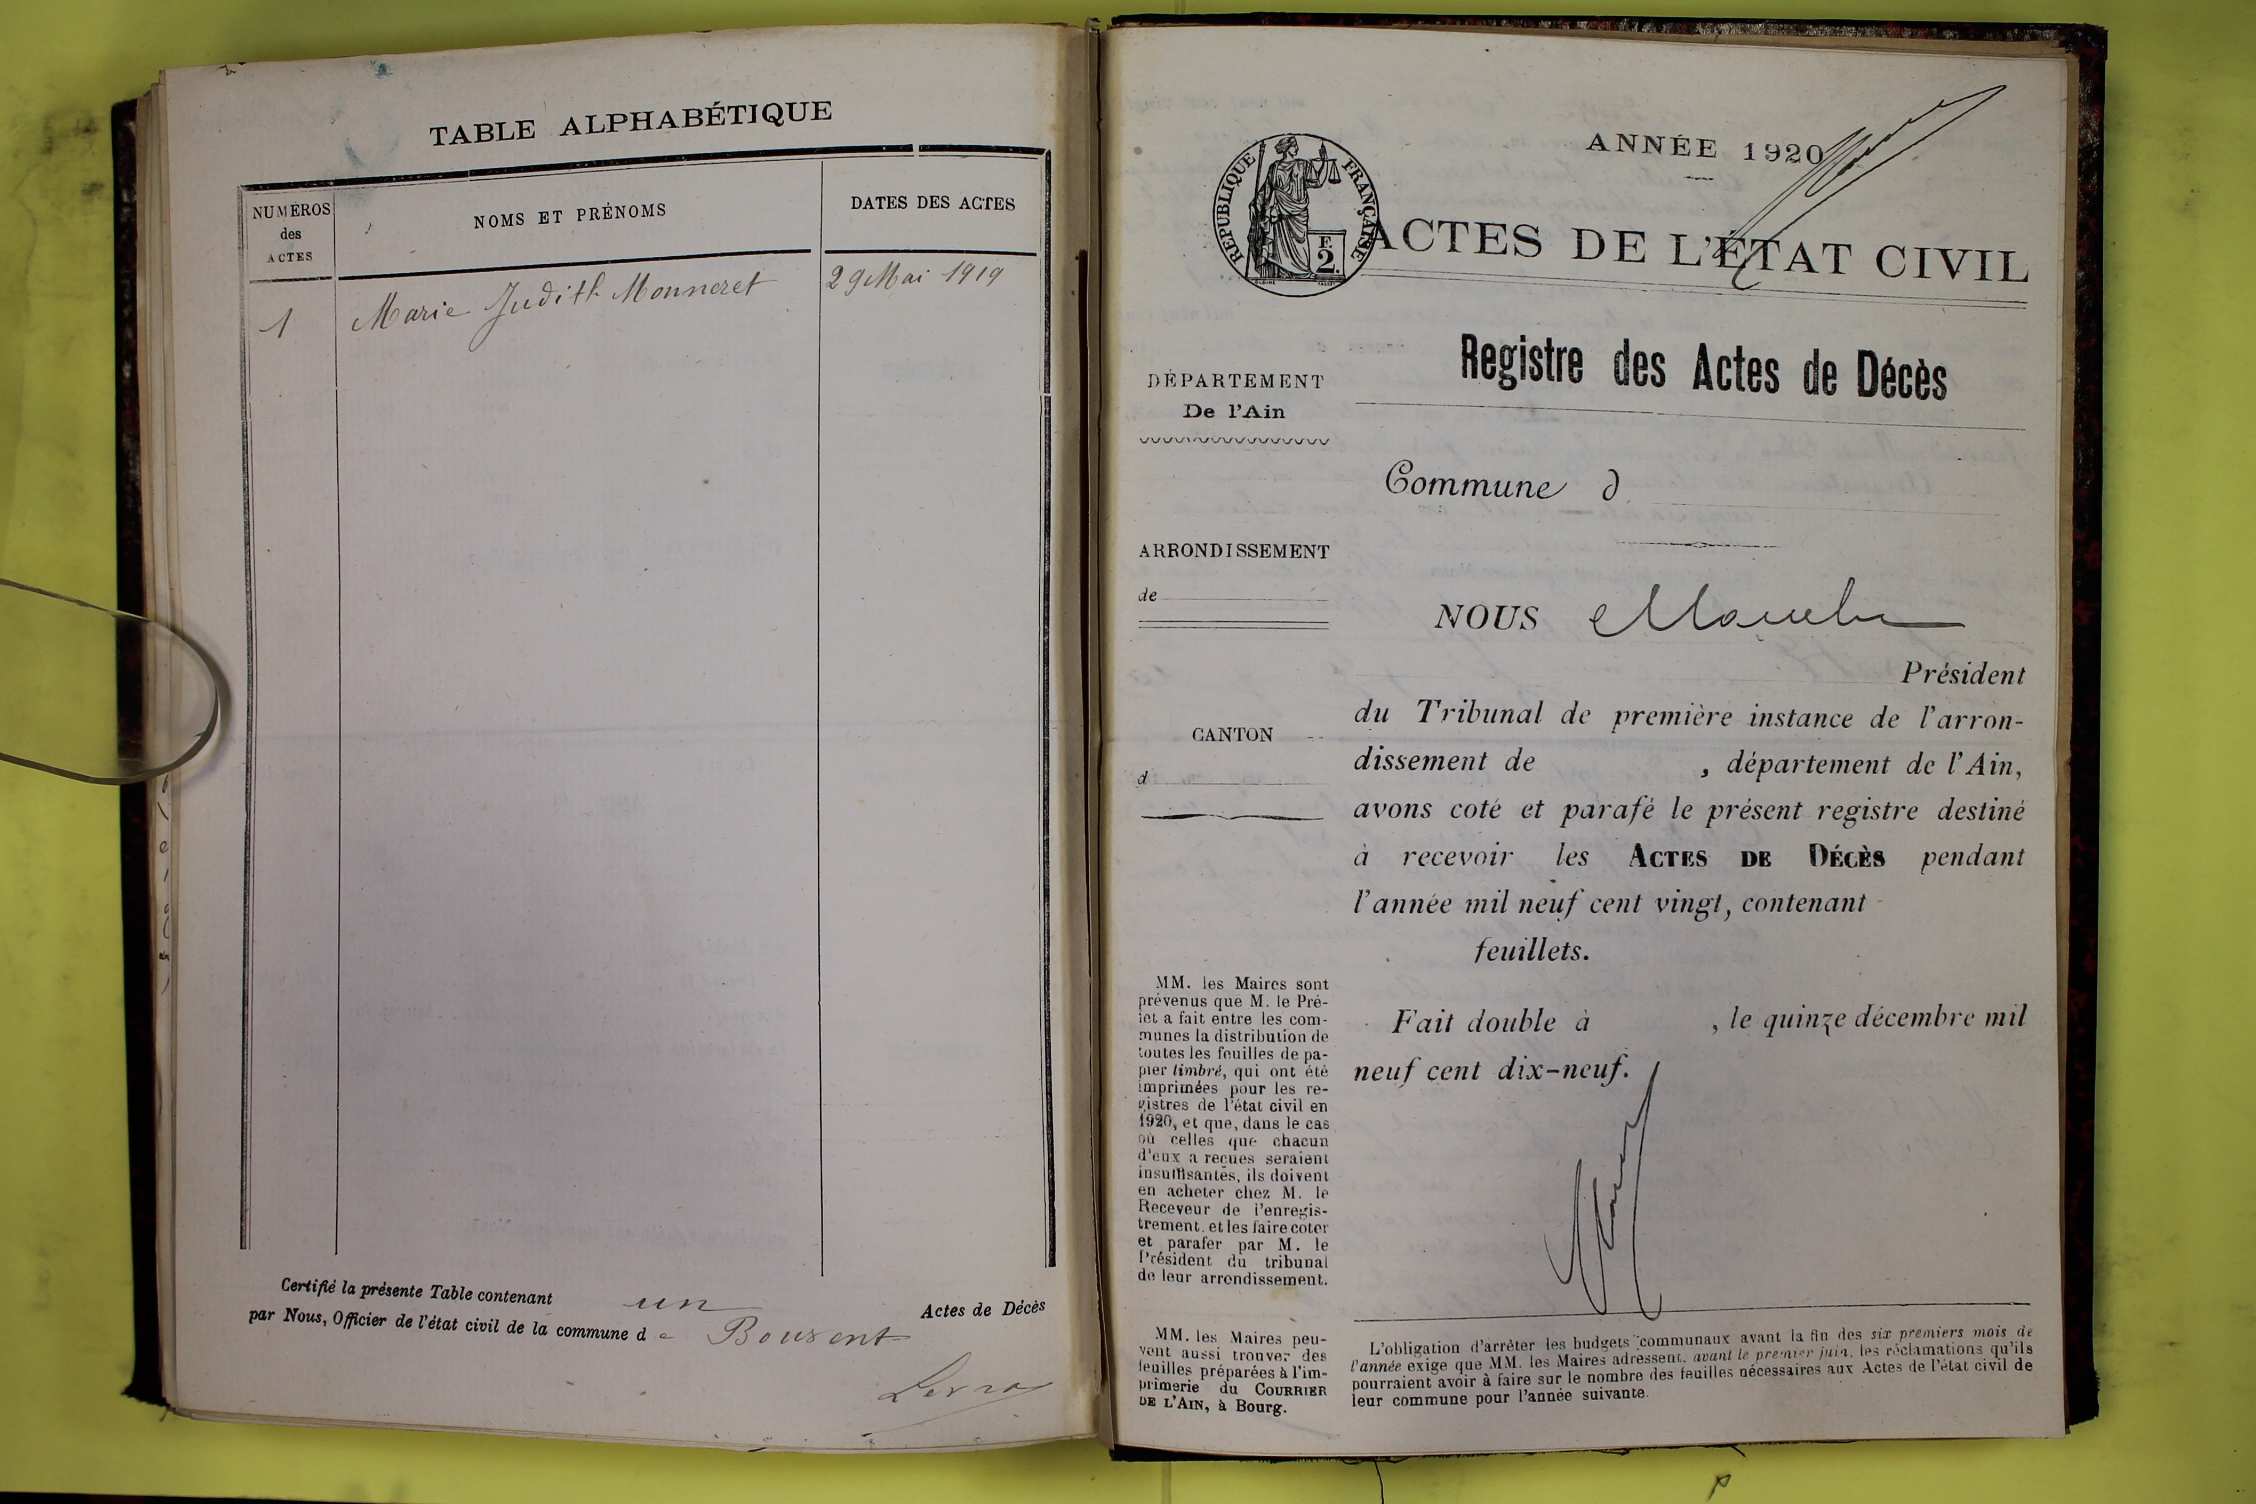 TABLE ALPHABÉTIQUE
NUMÉROS
des
ACTES
NOMS ET PRÉNOMS
DATES DES ACTES
1
Marie Judith Monneret
29 Mai 1919
Certifié la présente Table contenant un Actes de Décès
par Nous, Officier de l'état civil de la commune de
ANNÉE 1920
RÉPUBLIQUE FRANÇAISE
F.
2.
ACTES DE L'ÉTAT CIVIL
DÉPARTEMENT
De l'Ain
ARRONDISSEMENT
de
CANTON
d
MM. les Maires sont
prévenus que M. le Pré-
fet a fait entre les com-
munes la distribution de
toutes les feuilles de pa-
pier timbré, qui ont été
imprimées pour les re-
gistres de l'état civil en
1920, et que, dans le cas
où celles que chacun
d'eux a reçues seraient
insuffisantes, ils doivent
en acheter chez M. le
Receveur de l'enregis-
trement, et les faire coter
et parafer par M. le
Président du tribunal
de leur arrondissement.
MM. les Maires peu-
vent aussi trouver des
feuilles préparées à l'im-
primerie du COURRIER
DE L'AIN, à Bourg.
Registre des Actes de Décès
Commune d
NOUS
Président
du Tribunal de première instance de l'arron-
dissement de , département de l'Ain,
avons coté et parafé le présent registre destiné
à recevoir les ACTES DE DÉCÈS pendant
l'année mil neuf cent vingt, contenant
feuillets.
Fait double à , le quinze décembre mil
neuf cent dix-neuf.
L'obligation d'arrêter les budgets communaux avant la fin des six premiers mois de
l'année exige que MM. les Maires adressent, avant le premier juin, les réclamations qu'ils
pourraient avoir à faire sur le nombre des feuilles nécessaires aux Actes de l'état civil de
leur commune pour l'année suivante.